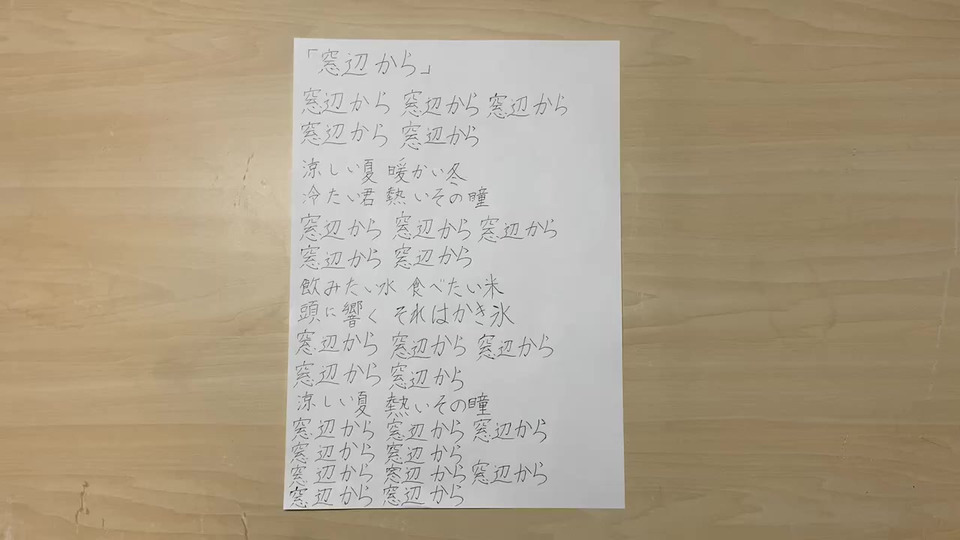 「窓辺から」
窓辺から 窓辺から 窓辺から
窓辺から 窓辺から
涼しい夏 暖かい冬
冷たい君 熱いその瞳
窓辺から 窓辺から 窓辺から
窓辺から 窓辺から
飲みたい水 食べたい米
頭に響く それはかき氷
窓辺から 窓辺から 窓辺から
窓辺から 窓辺から
涼しい夏 熱いその瞳
窓辺から 窓辺から 窓辺から
窓辺から 窓辺から
窓辺から 窓辺から 窓辺から
窓辺から 窓辺から